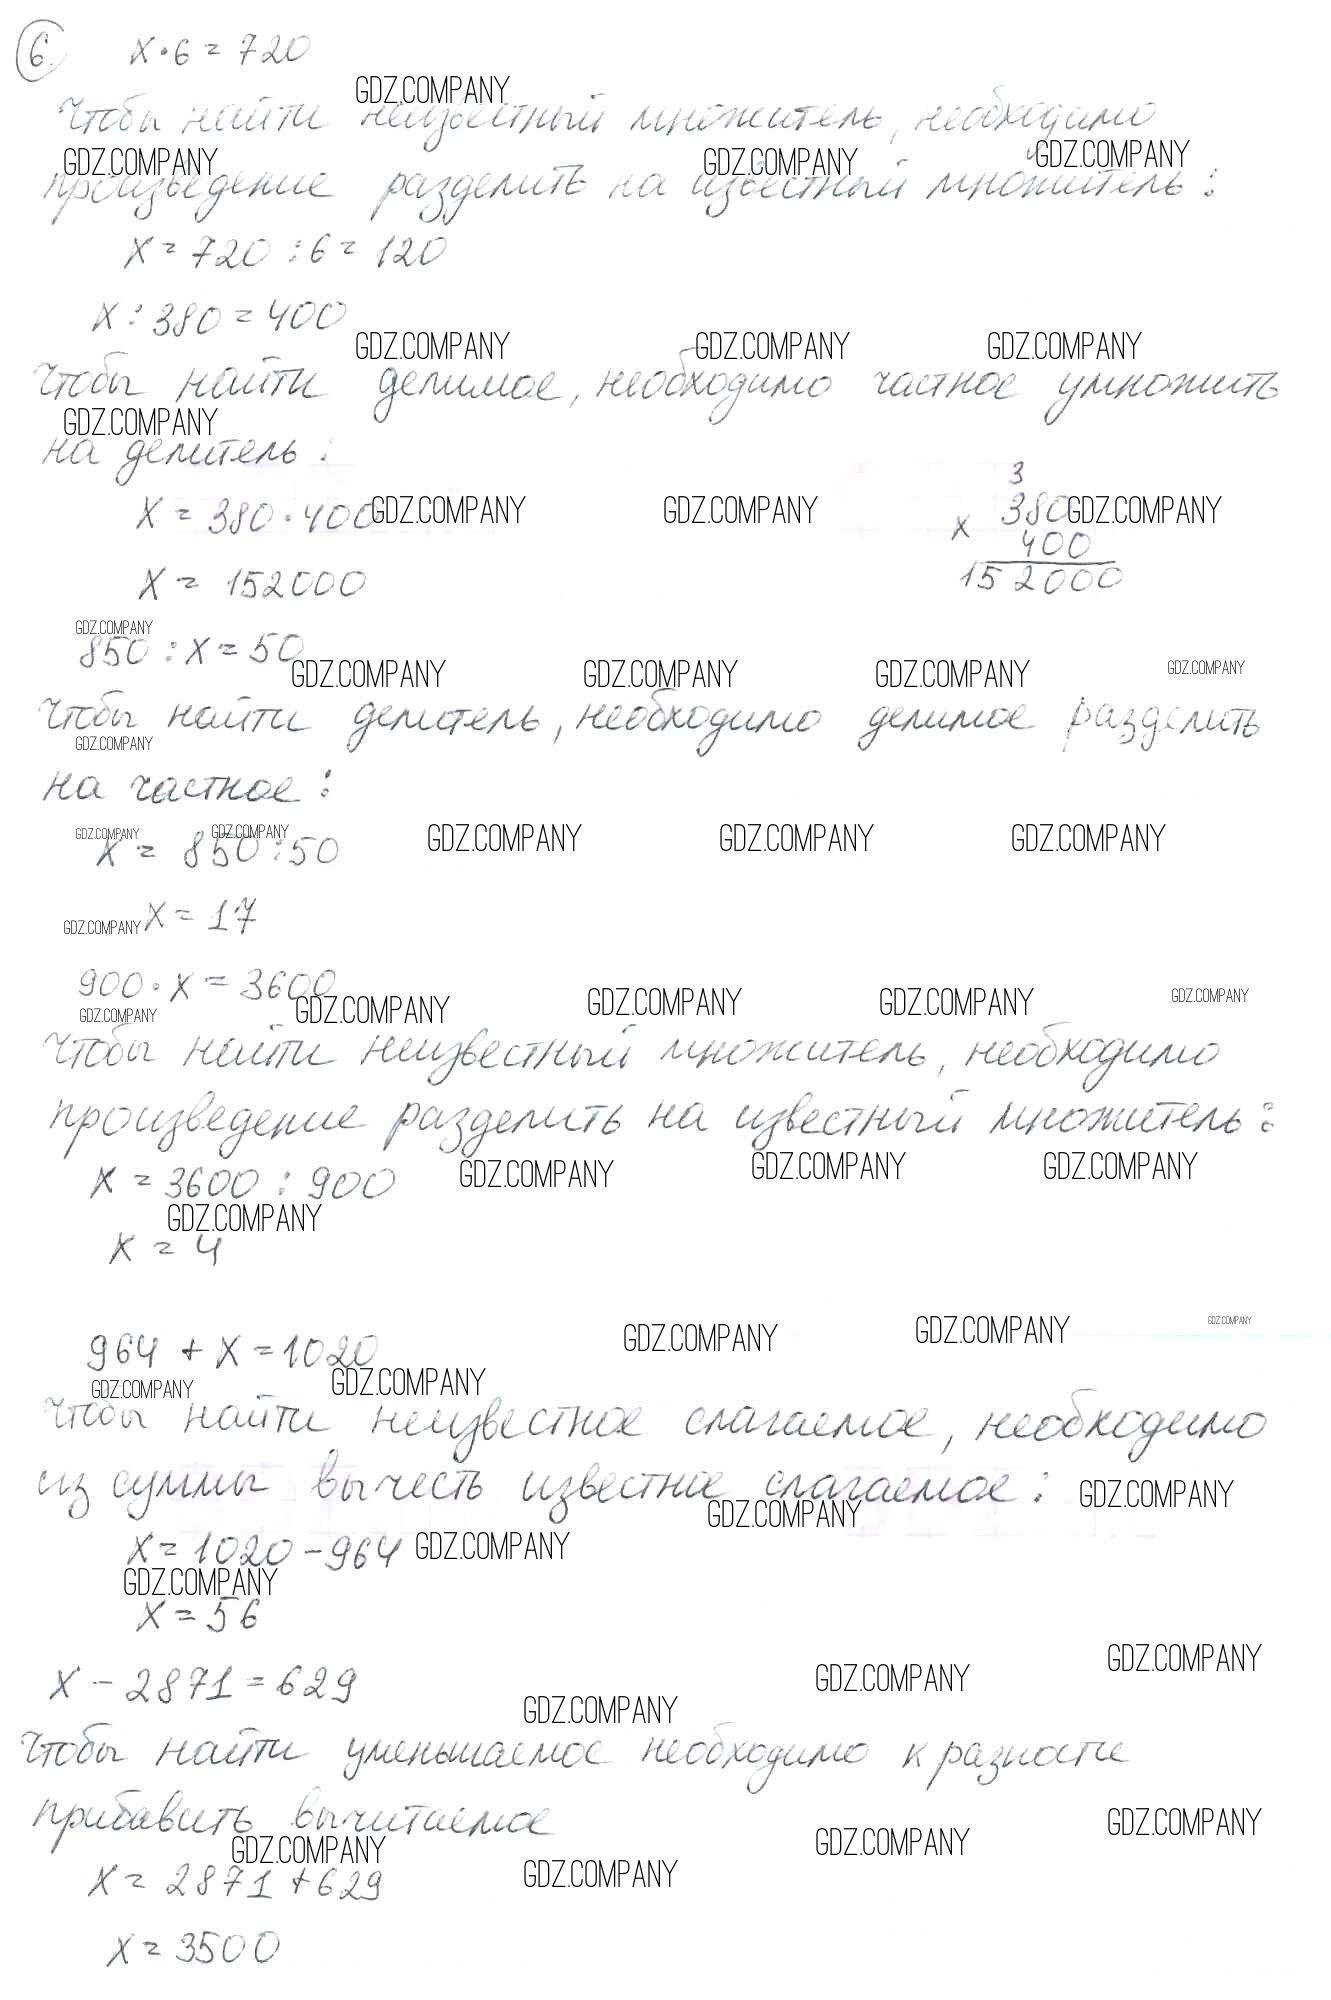 6. x·6=720
GDZ.COMPANY
Чтобы найти неизвестный множитель, необходимо
GDZ.COMPANY GDZ.COMPANY GDZ.COMPANY
произведение разделить на известный множитель:
x=720:6=120
x:380=400
GDZ.COMPANY GDZ.COMPANY GDZ.COMPANY
Чтобы найти делимое, необходимо частное умножить
GDZ.COMPANY
на делитель:
3
x=380·400 GDZ.COMPANY GDZ.COMPANY 380 GDZ.COMPANY
x 400
x=152000 152000
GDZ.COMPANY
850:x=50
GDZ.COMPANY GDZ.COMPANY GDZ.COMPANY GDZ.COMPANY
Чтобы найти делитель, необходимо делимое разделить
GDZ.COMPANY
на частное:
GDZ.COMPANY GDZ.COMPANY GDZ.COMPANY GDZ.COMPANY GDZ.COMPANY
x=850:50
GDZ.COMPANY x=17
900·x=3600
GDZ.COMPANY GDZ.COMPANY GDZ.COMPANY GDZ.COMPANY GDZ.COMPANY
Чтобы найти неизвестный множитель, необходимо
произведение разделить на известный множитель:
x=3600:900 GDZ.COMPANY GDZ.COMPANY GDZ.COMPANY
GDZ.COMPANY
x=4
GDZ.COMPANY GDZ.COMPANY GDZ.COMPANY
964+x=1020
GDZ.COMPANY GDZ.COMPANY
Чтобы найти неизвестное слагаемое, необходимо
из суммы вычесть известное слагаемое: GDZ.COMPANY
GDZ.COMPANY
x=1020-964 GDZ.COMPANY
GDZ.COMPANY
x=56
GDZ.COMPANY
x-2871=629 GDZ.COMPANY
GDZ.COMPANY
Чтобы найти уменьшаемое необходимо к разности
прибавить вычитаемое GDZ.COMPANY
GDZ.COMPANY GDZ.COMPANY
x=2871+629 GDZ.COMPANY
x=3500